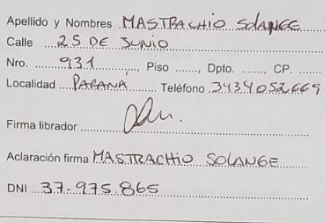 Apellido y Nombres MASTRACHIO SOLANGE
Calle 25 DE JUNIO
Nro. 931, Piso ......, Dpto. ......, CP. ......
Localidad PARANA Teléfono 3434052669
Firma librador
Aclaración firma MASTRACHIO SOLANGE
DNI 37.975.865